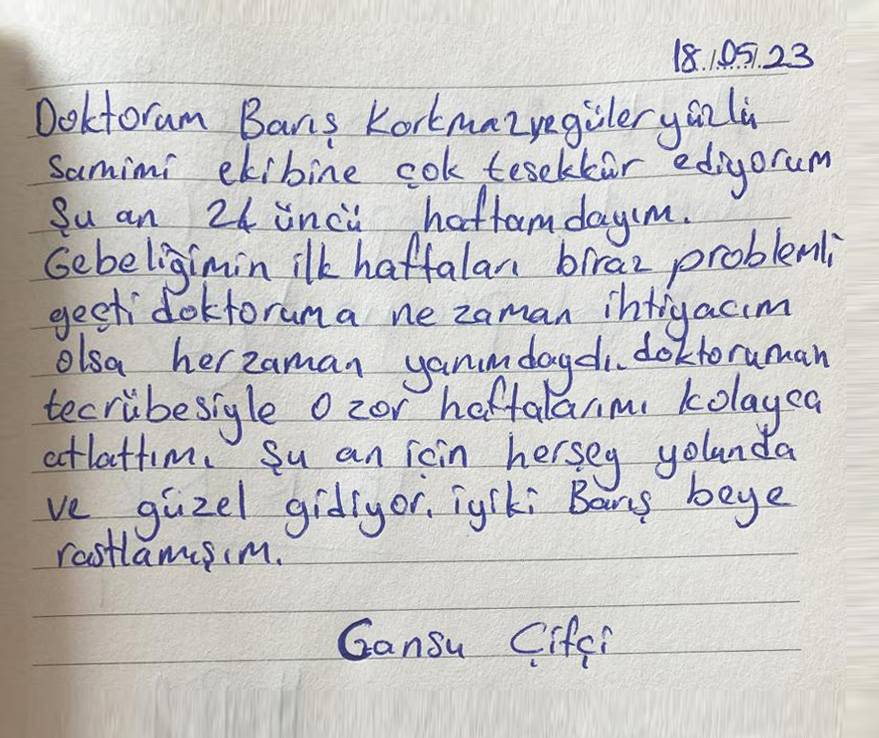 18.05.23
Doktorum Barış Korkmaz ve güler yüzlü
samimi ekibine çok tesekkür ediyorum
Şu an 24 üncü haftamdayım.
Gebeliğimin ilk haftaları biraz problemli
geçti doktoruma ne zaman ihtiyacım
olsa her zaman yanımdaydı. doktoruman
tecrübesiyle o zor haftalarımı kolayca
atlattım. Şu an için herşey yolunda
ve güzel gidiyor. iyiki Barış beye
rastlamışım.
Gansu Çifçi